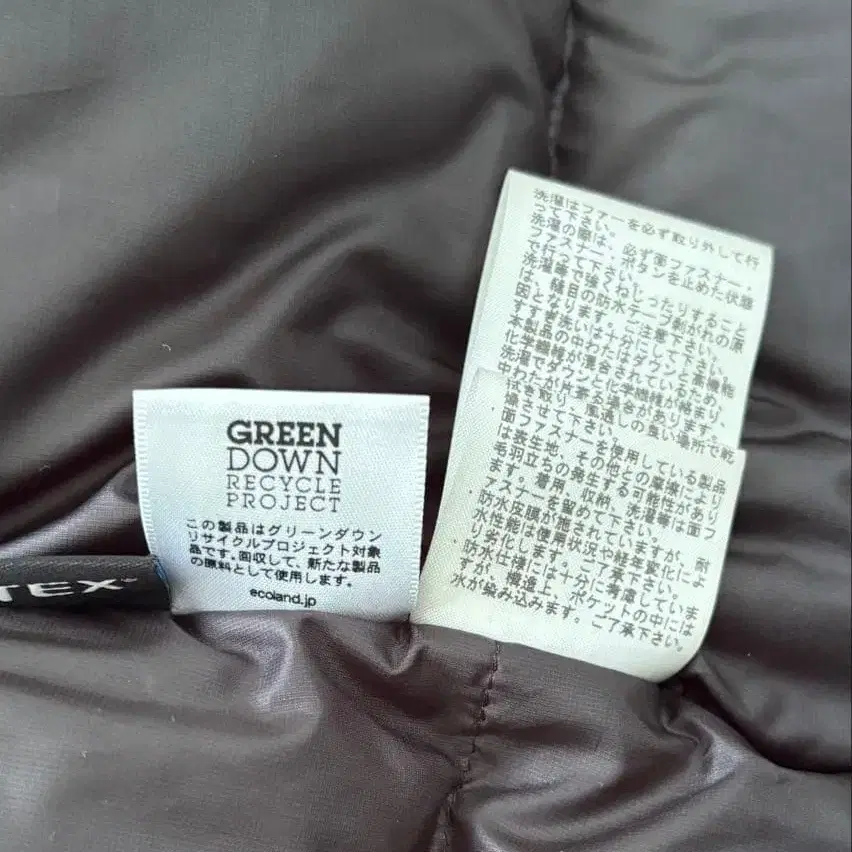 GREEN
DOWN
RECYCLE
PROJECT
この製品はグリーンダウン
リサイクルプロジェクト対象
品です。回収して、新たな製品
の原料として使用します。
ecoland.jp
TEX
洗濯はファーを必ず取り外して行
って下さい。
洗濯の際は、必ず面ファスナー・
ファスナー、ボタンを止めた状態
で行って下さい。
洗濯等で強くねじったりすること
は、縫目の防水テープ剥がれの原
因となります。ご注意下さい。
すすぎ洗いは十分にして下さい。
本製品の中わたはダウンと高機能
化学繊維が混合されているため、
洗濯でダウンと化学繊維が絡まり、
中わたが片寄る場合があります。
拭き取り、風通しの良い場所で乾
燥させて下さい。
・面ファスナーを使用している製品
は表生地、その他との摩擦により
毛羽立ちの発生する可能性があり
ます。着用、収納、洗濯等は面フ
ァスナーを留めて下さい。
・防水皮膜が施されていますが、耐
水性能は使用状況や経年変化によ
り劣化します。ご了承下さい。
・防水仕様には十分に考慮していま
すが、構造上、ポケットの中には
水が染み込みます。ご了承下さい。